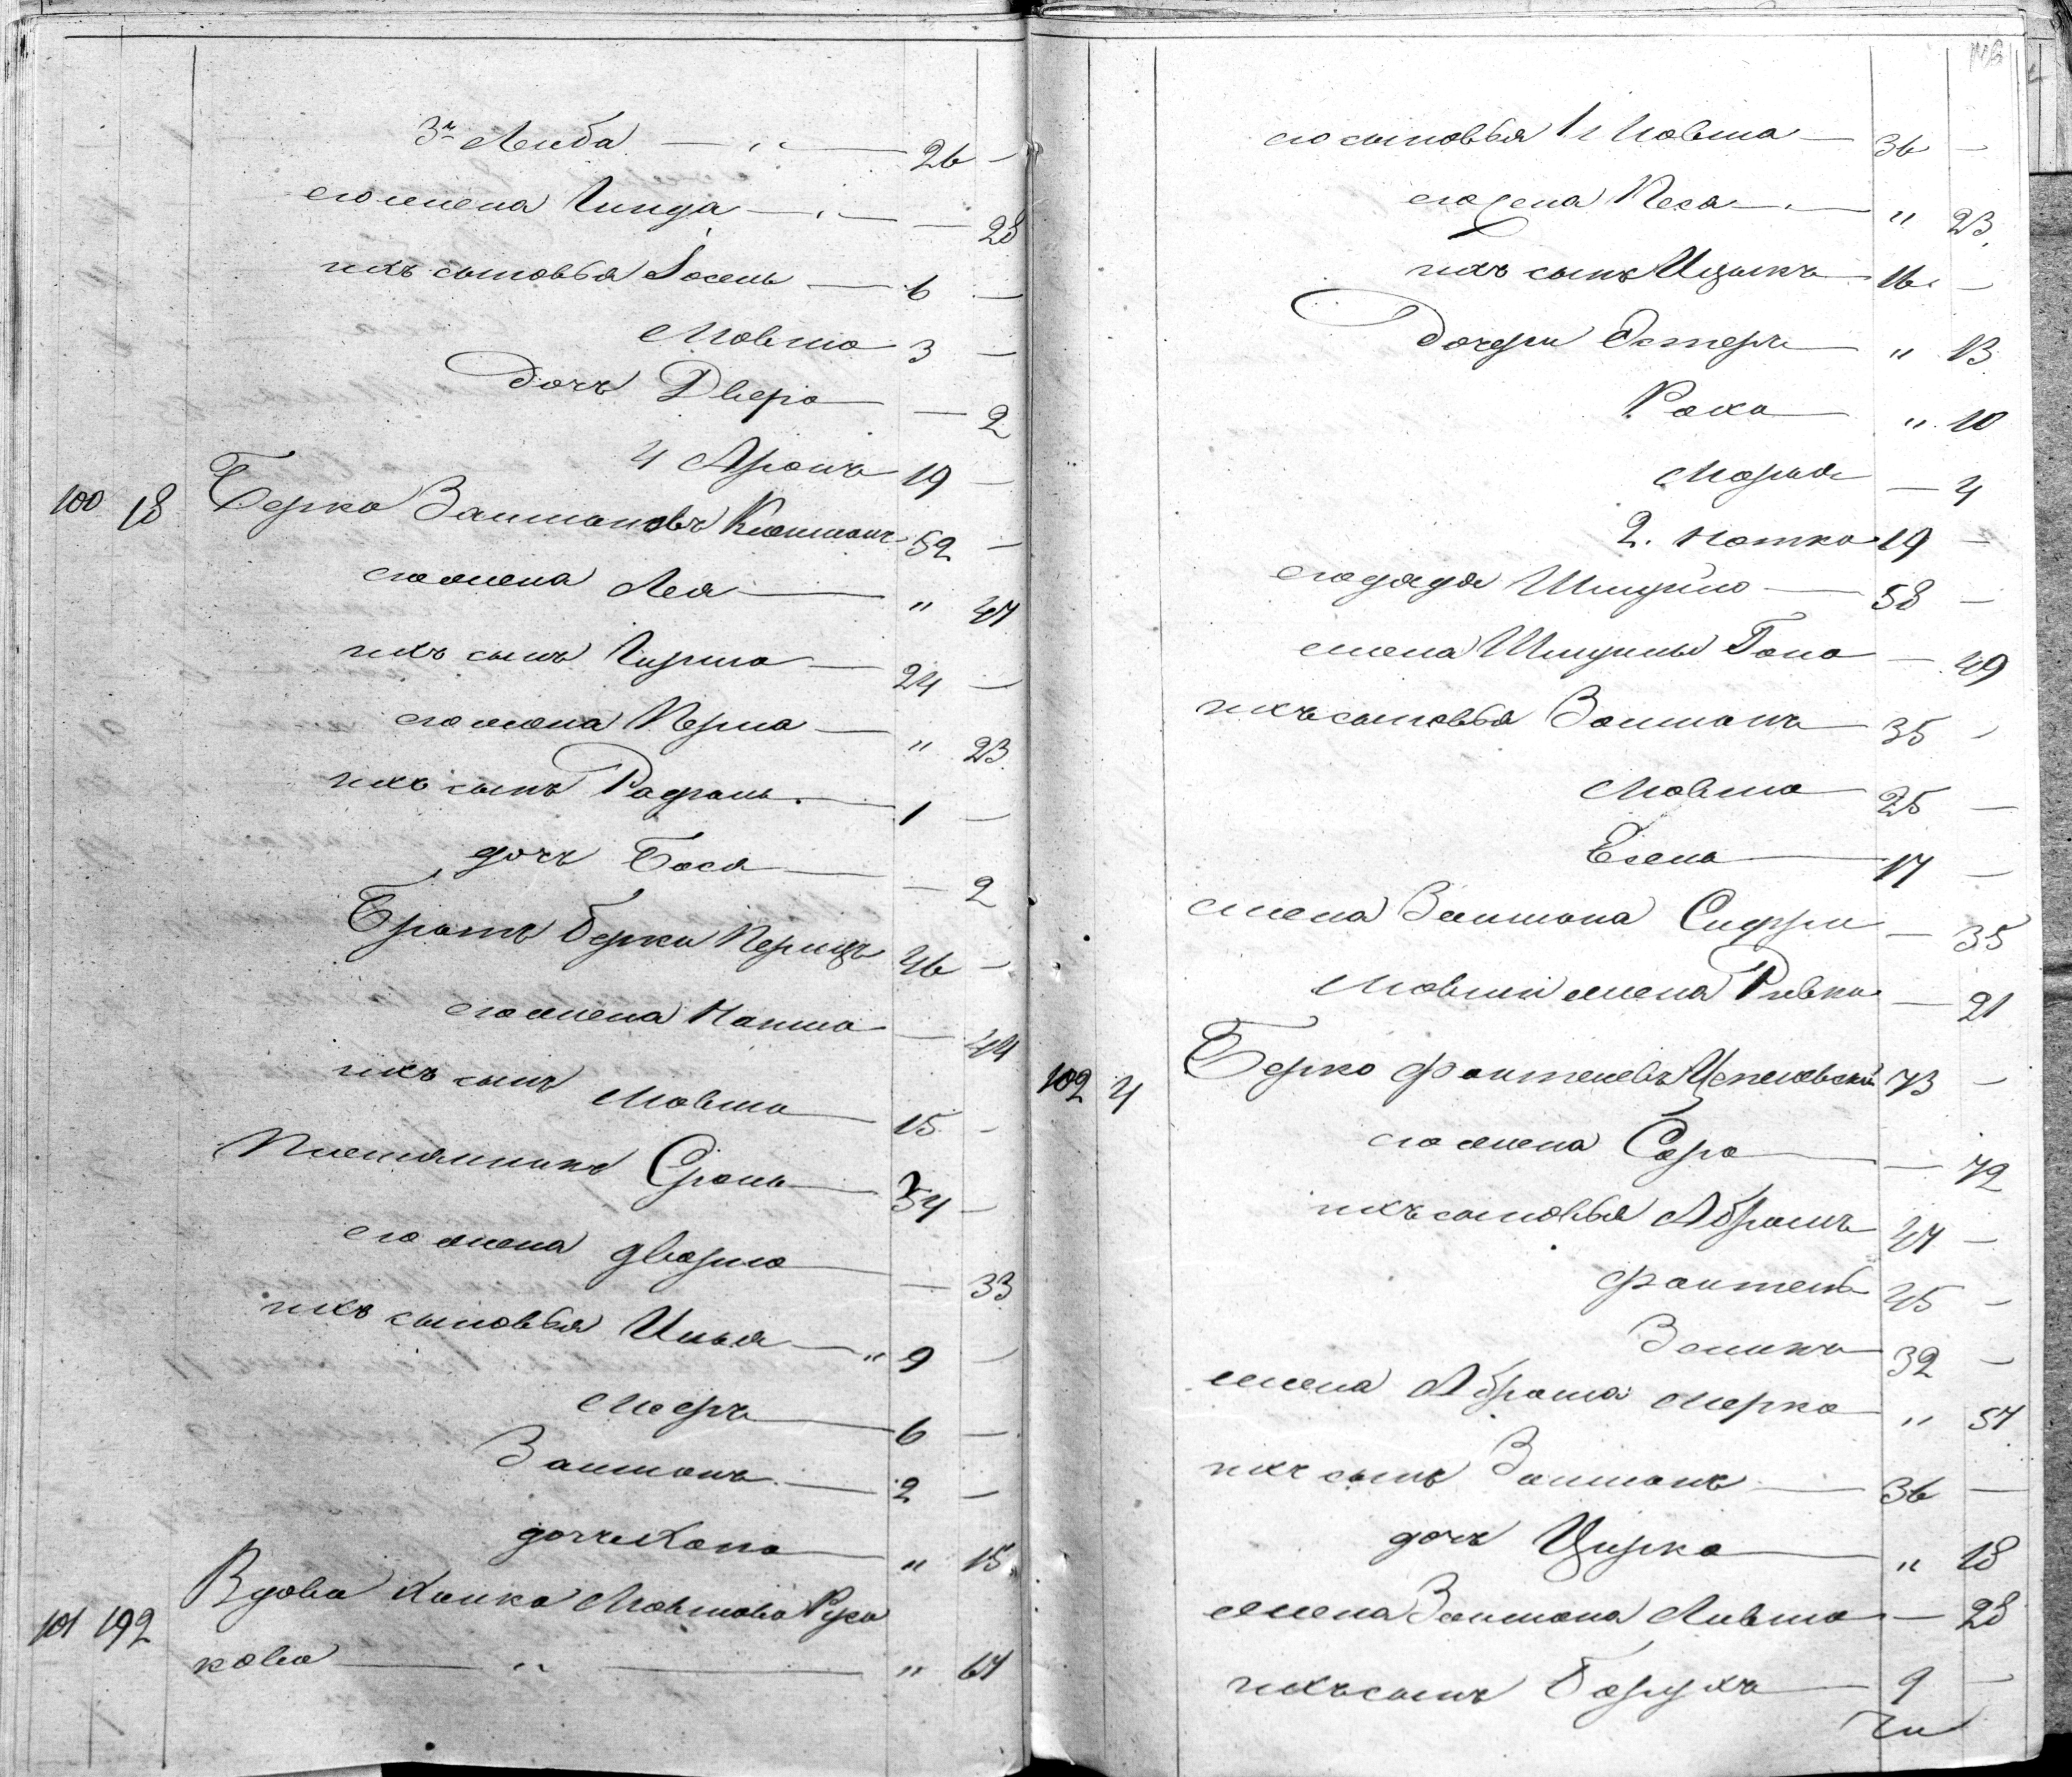 3й Лейба — 26 —
его жена Гинда — — 28
ихъ сыновья Іосель — 6 —
Мовша 3 —
дочь Двера — — 2
4 Аронъ 19 —
100 18 Берко Залмановъ 52 —
его жена Лея — " 47
ихъ сынъ Гирша — 24 —
его жена Перла — " 23
ихъ сынъ — 1 —
дочь Бася — — 2
Братъ Берки Перецъ 46 —
его жена — 44
ихъ сынъ Мовша — 15 —
Племянникъ Сроль — 34 —
его жена Двойра — — 33
ихъ сыновья Илья — " 9 —
Мееръ — 6 —
Залманъ — 2 —
дочь Хана — " 15
101 192 Вдова Ханка Мовшова
кова — " — " 67
его сыновья 1й Мовша — 36 —
его жена Песа — " 23
ихъ сынъ Ицыкъ 16 —
дочери Эстеръ — " 13
Раха — " 10
Марья — 4
2. Нотка 19 —
его дядя Шмуйло — 58 —
жена Шмуйлы — 49
ихъ сыновья Залманъ — 35 —
Мовша — 25 —
— 17 —
жена Залмана — 35
Мовши жена Ривка — 21
102 4 Берко Файтелевъ 73 —
его жена Сора — — 72
ихъ сыновья Абрамъ 47 —
Файтель 45 —
Зеликъ 32 —
жена Абрама Мерка " 57
ихъ сынъ Залманъ — 36 —
дочь Цирка — " 18
жена Залмана — 28
ихъ сынъ Борухъ — 9 —